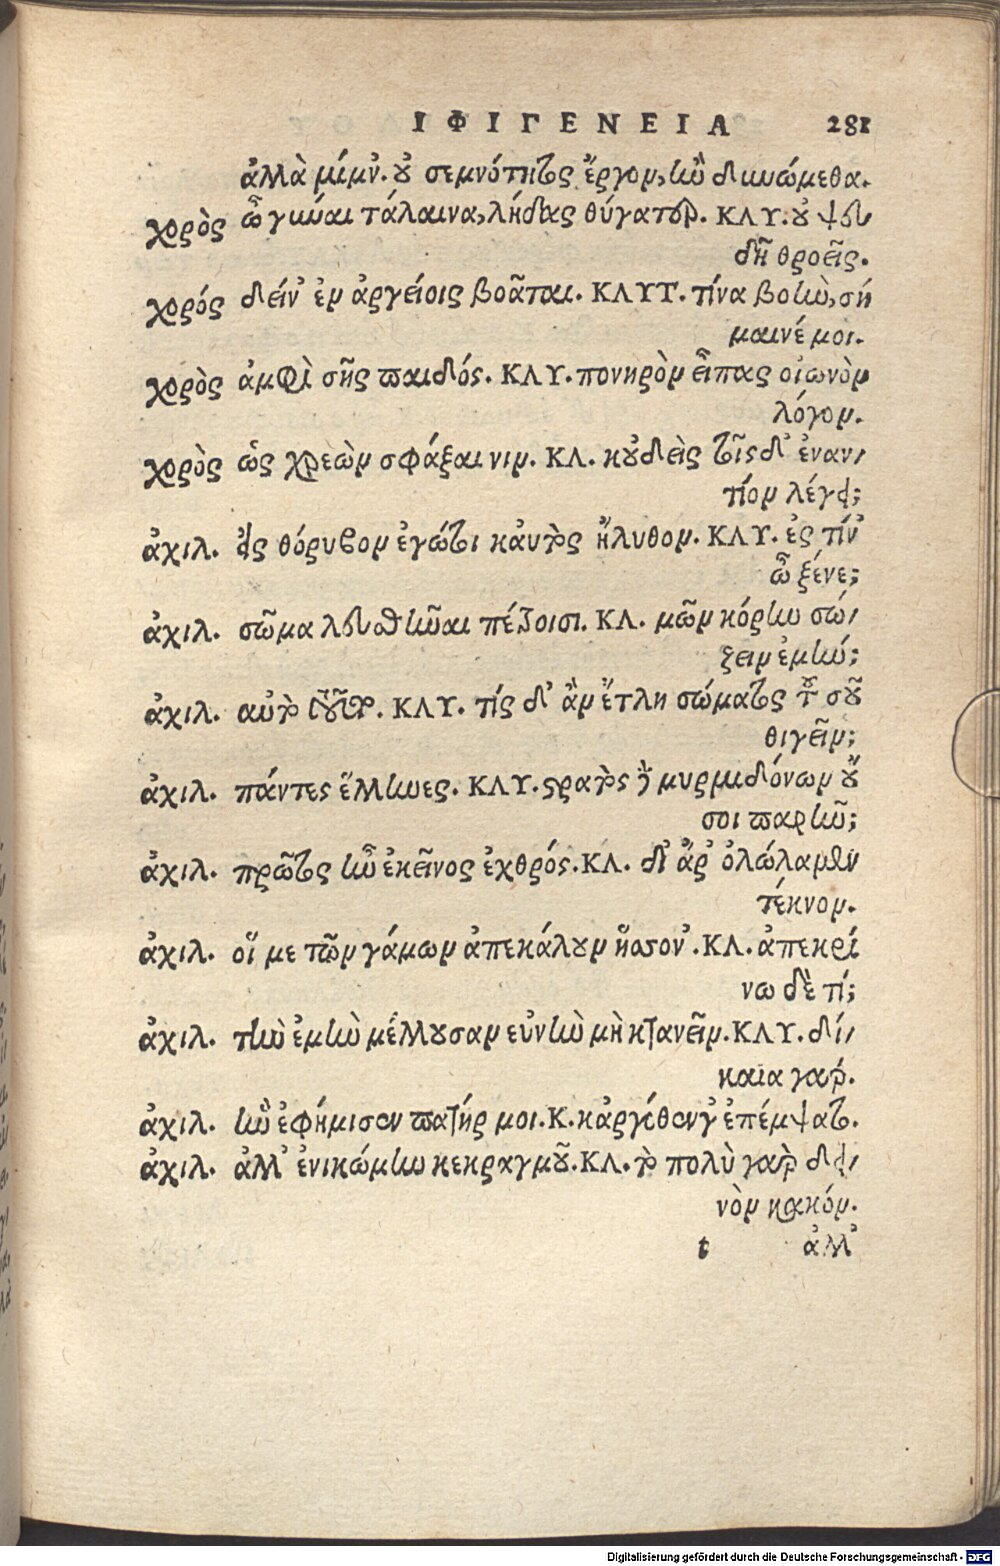 ΙΦΙΓΕΝΕΙΑ 281
ἀλλὰ μίμν'. οὐ σεμνότητος ἔργον, ἢν δυνώμεθα.
χορὸς ὦ γύναι τάλαινα, λήδας θύγατερ. ΚΛΥ. οὐ ψευ
δῆ θροεῖς.
χορός δείν' ἐν ἀργείοις βοᾶται. ΚΛΥΤ. τίνα βοὴν, σή
μαινέ μοι.
χορὸς ἀμφὶ σῆς παιδός. ΚΛΥ. πονηρὸν εἶπας οἰωνὸν
λόγον.
χορὸς ὡς χρεὼν σφάξαι νιν. ΚΛ. κοὐδεὶς τοῖς δ' ἐναν-
τίον λέγει;
ἀχιλ. εἰς θόρυβον ἐγώ τοι καὐτὸς ἤλυθον. ΚΛΥ. ἐς τίν'
ὦ ξένε;
ἀχιλ. σῶμα λευσθῆναι πέτροισι. ΚΛ. μῶν κόρην σώ-
ζειν ἐμήν;
ἀχιλ. αὐτὸ τοῦτο. ΚΛΥ. τίς δ' ἂν ἔτλη σώματος τοῦ σοῦ
θιγεῖν;
ἀχιλ. πάντες ἕλληνες. ΚΛΥ. στρατὸς δὲ μυρμιδόνων οὔ
σοι παρῆν;
ἀχιλ. πρῶτος ἦν ἐκεῖνος ἐχθρός. ΚΛ. δι' ἄρ' ὀλώλαμεν
τέκνον.
ἀχιλ. οἵ με τῶν γάμων ἀπεκάλουν ἥσσον'. ΚΛ. ἀπεκρί
νω δὲ τί;
ἀχιλ. τὴν ἐμὴν μέλλουσαν εὐνὴν μὴ κτανεῖν. ΚΛΥ. δί-
καια γάρ.
ἀχιλ. ἣν ἐφήμισεν πατήρ μοι. Κ. κἀργόθεν γ' ἐπέμψατο.
ἀχιλ. ἀλλ' ἐνικώμην κεκραγμοῦ. ΚΛ. τὸ πολὺ γὰρ δει-
νὸν κακόν.
t ἀλλ'
Digitalisierung gefördert durch die Deutsche Forschungsgemeinschaft - DFG